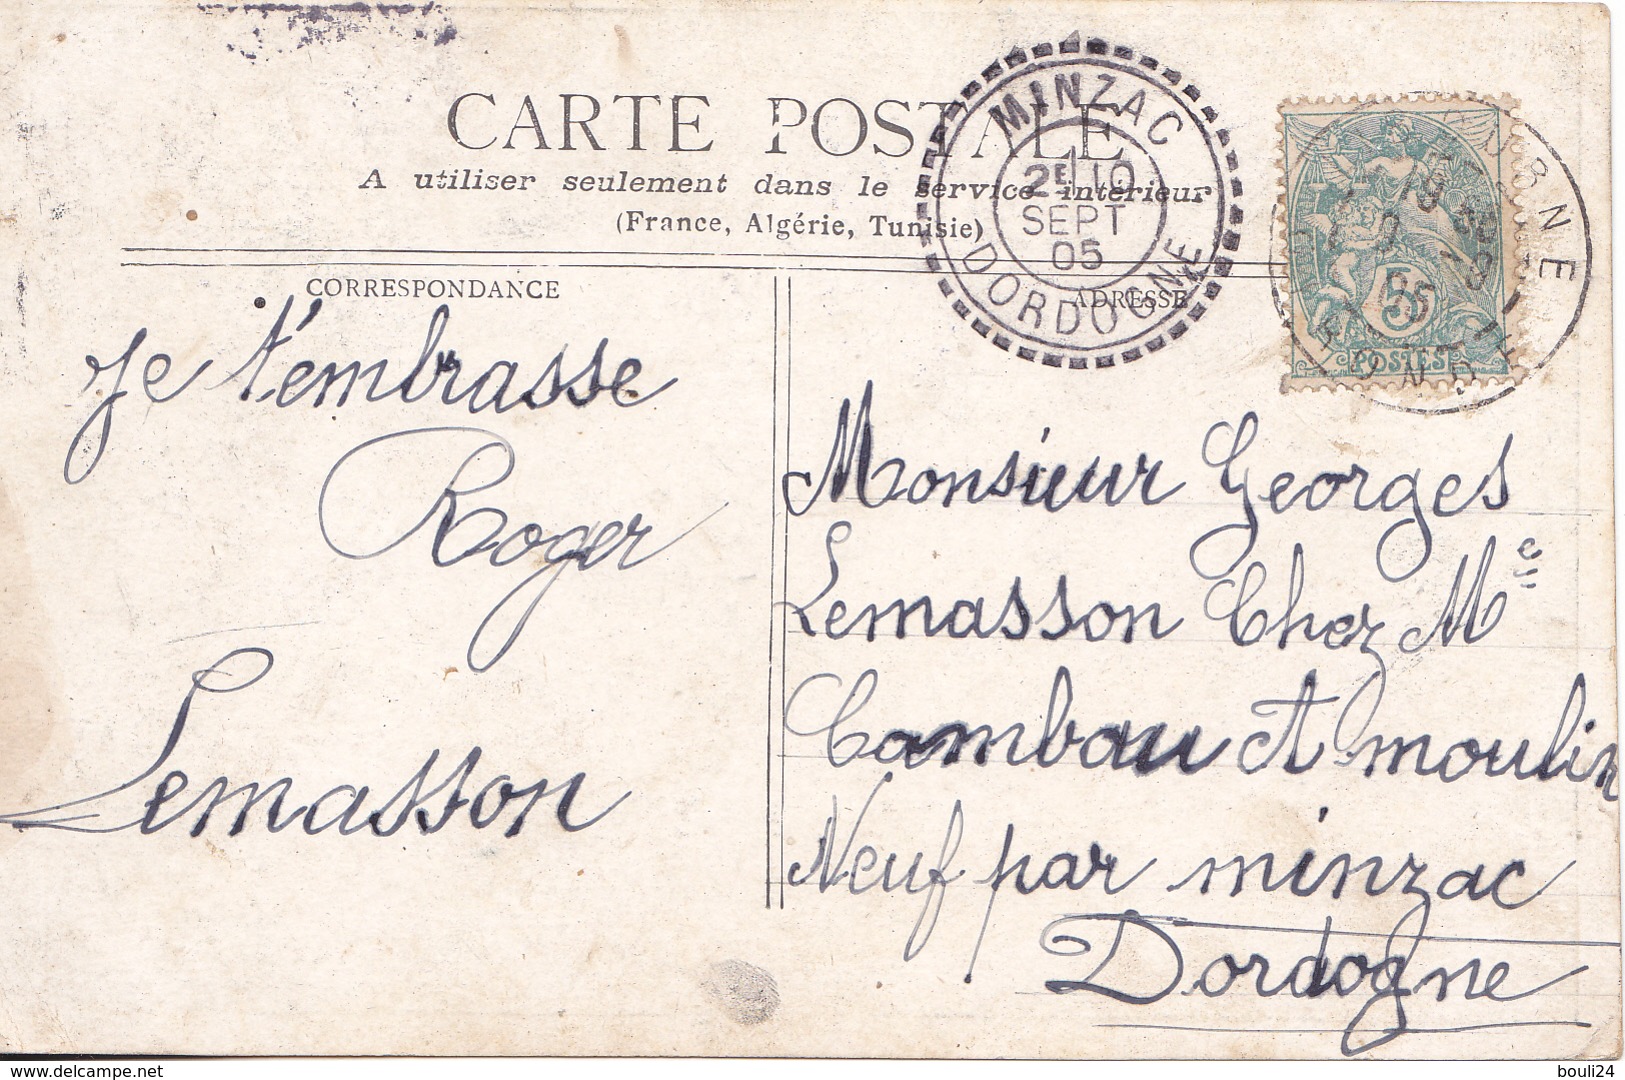 CARTE POSTALE
A utiliser seulement dans le service intérieur
(France, Algérie, Tunisie)
MINZAC
2E 10
SEPT
05
DORDOGNE
5
POSTES
CORRESPONDANCE
ADRESSE
je t'embrasse
Roger
Lemasson
Monsieur Georges
Lemasson Chez Me
Cambau At moulin
Neuf par minzac
Dordogne
www.delcampe.net
bouli24